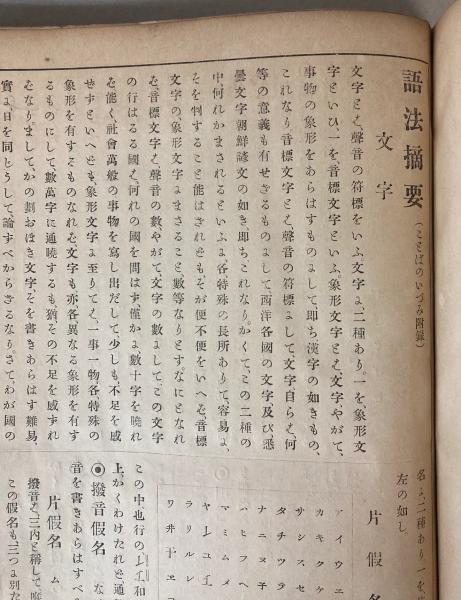 語法摘要(ことばのいづみ附錄)
文字
文字とは、聲音の符標をいふ、文字に二種あり。一を象形文
字といひ一を、音標文字といふ、象形文字とは、文字やがて、
事物の象形をあらはすものにして即ち漢字の如きもの、
これなり音標文字とは聲音の符標にして文字自らは、何
等の意義も有せざるものにして西洋各國の文字及び悉
曇文字朝鮮諺文の如き、即ちこれなり、かくて、この二種の
中、何れかまされるといふに、各特殊の長所ありて、容易に、
そを判すること能はざれども、そが便不便をいへば、音標
文字の象形文字にまさること、數等なりとす、なにとなれ
ば、音標文字は、聲音の數やがて文字の數にして、この文字
の行はるる國は、何れの國を問はず、僅かに數十字を曉れ
ば能く、社會萬般の事物を寫し出だして、少しも、不足を感
ぜずといへども、象形文字に至りては、一事一物各特殊の
象形を有すべきものなれば、文字も亦各異なる象形を有す
るものにして數萬字に通曉するも猶その不足を感ずれ
ばなり、まして、かの劃おほき文字は、そを書きあらはす難易、
實に、日を同じうして、論ずべからざるなり。さて、わが國の
名に、二種あり一を
左の如し
片假名
アイウエ
カキクケ
サシスセ
タチツテ
ナニヌネ
ハヒフヘ
マミムメ
ヤイユエ
ラリルレ
ワヰウヱ
この中也行のイエ和
上、かくわけたれど通
◉撥音假名
音を書きあらはすべ
片假名 ム
撥音は、三内と稱して
この假名も、三つに別た